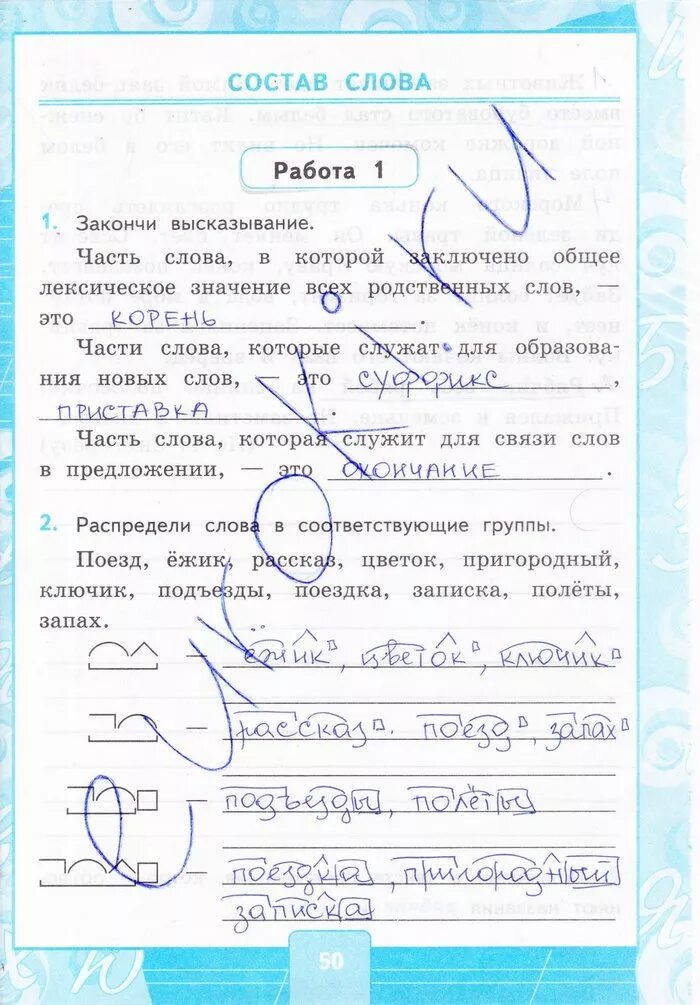 СОСТАВ СЛОВА
Работа 1
1. Закончи высказывание.
Часть слова, в которой заключено общее
лексическое значение всех родственных слов, —
это КОРЕНЬ .
Части слова, которые служат для образова-
ния новых слов, — это суффикс ,
ПРИСТАВКА .
Часть слова, которая служит для связи слов
в предложении, — это ОКОНЧАНИЕ .
2. Распредели слова в соответствующие группы.
Поезд, ёжик, рассказ, цветок, пригородный,
ключик, подъезды, поездка, записка, полёты,
запах.
— ёжик, цветок, ключик
— рассказ. поезд, запах
— подъезды, полёты
поездка, пригородный
записка
50